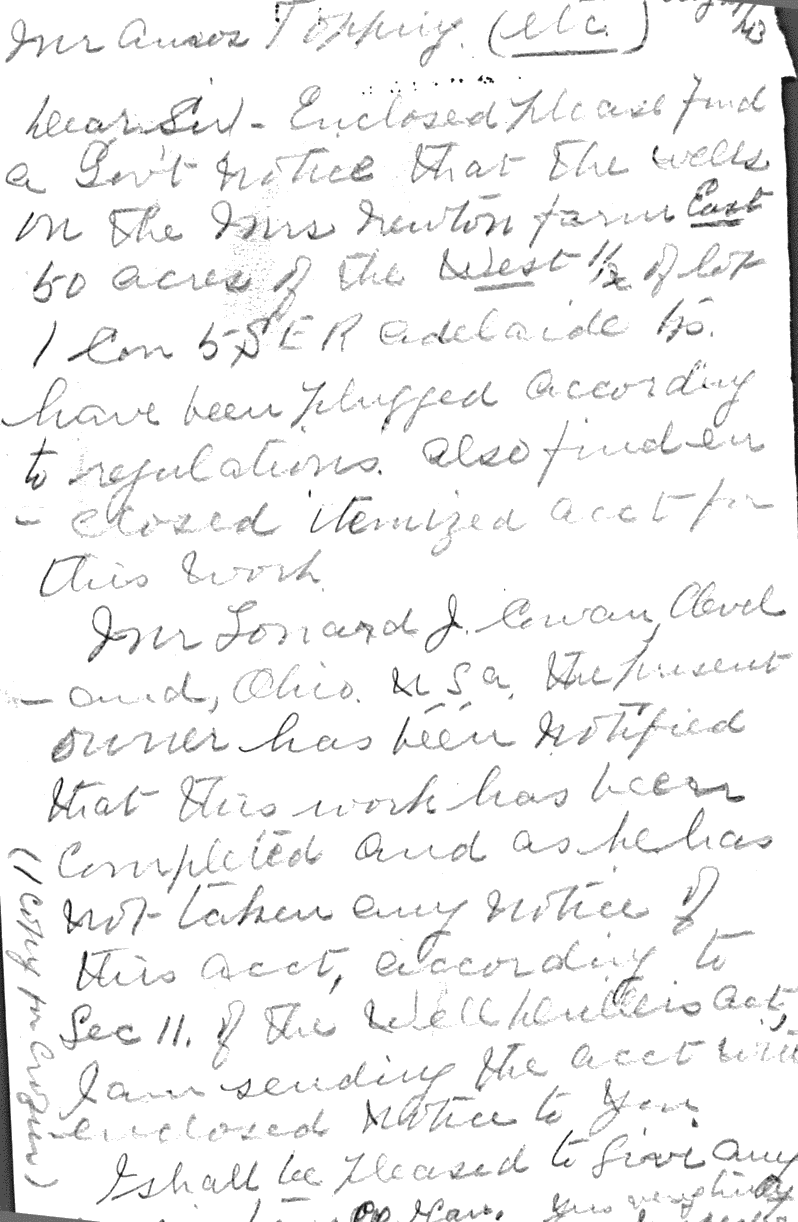 Mr Topping. (etc.)
Dear Sir - Enclosed please find
a Gov't Notice that the wells
on the Mrs Newton farm East
50 acres of the West 1/2 of lot
1 Con 5 S E R Adelaide
have been plugged according
to regulations. Also find en
- closed itemized acct for
this work.
Mr Lonard J. Cowan, Clevel
- and, Ohio. U S a. the present
owner has been notified
that this work has been
completed and as he has
not taken any notice of
this acct, according to
Sec 11. of the Well Drillers act,
I am sending the acct with
enclosed Notice to You
I shall be pleased to give any
Yrs very truly
(1 copy for